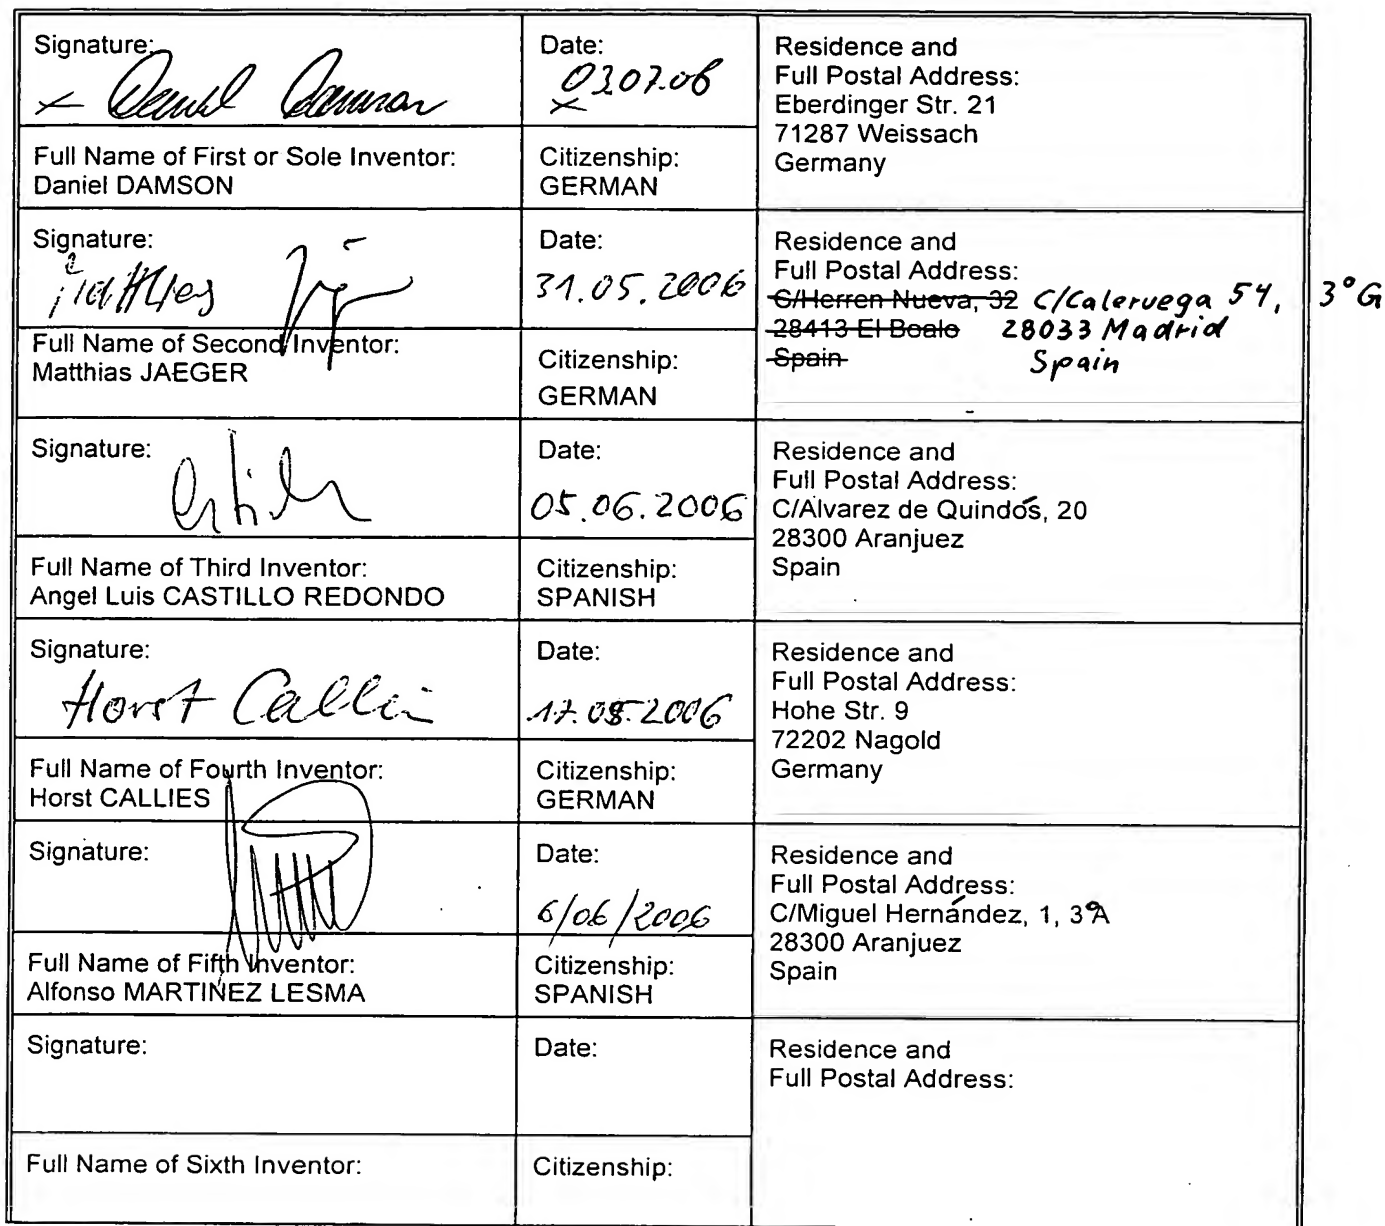 Signature:
× Daniel Damson
Date:
03.07.06
×
Residence and
Full Postal Address:
Eberdinger Str. 21
71287 Weissach
Germany
Full Name of First or Sole Inventor:
Daniel DAMSON
Citizenship:
GERMAN
Signature:
Date:
31.05.2006
Residence and
Full Postal Address:
C/Herren Nueva, 32 C/Caleruega 54, 3°G
28413 El Boalo 28033 Madrid
Spain Spain
Full Name of Second Inventor:
Matthias JAEGER
Citizenship:
GERMAN
Signature:
Date:
05.06.2006
Residence and
Full Postal Address:
C/Alvarez de Quindós, 20
28300 Aranjuez
Spain
Full Name of Third Inventor:
Angel Luis CASTILLO REDONDO
Citizenship:
SPANISH
Signature:
Horst Callies
Date:
Residence and
Full Postal Address:
Hohe Str. 9
72202 Nagold
Germany
Full Name of Fourth Inventor:
Horst CALLIES
Citizenship:
GERMAN
Signature:
Date:
6/06/2006
Residence and
Full Postal Address:
C/Miguel Hernández, 1, 3ºA
28300 Aranjuez
Spain
Full Name of Fifth Inventor:
Alfonso MARTÍNEZ LESMA
Citizenship:
SPANISH
Signature:
Date:
Residence and
Full Postal Address:
Full Name of Sixth Inventor:
Citizenship: